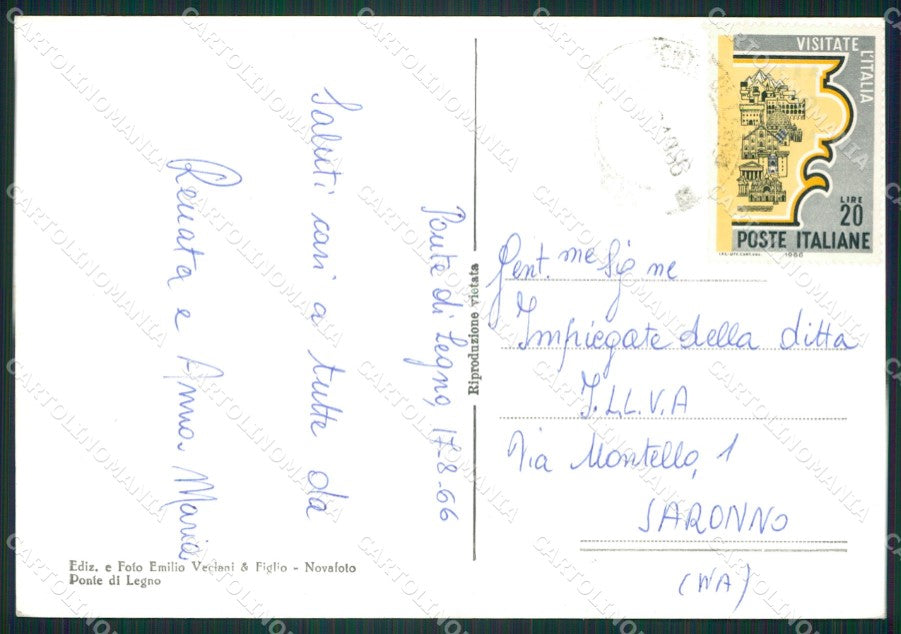 Ponte di Legno, 17-8-66
Saluti cari a tutte da
Renata e Anna-Maria
Ediz. e Foto Emilio Veclani & Figlio - Novafoto
Ponte di Legno
Riproduzione vietata
VISITATE L'ITALIA
LIRE
20
POSTE ITALIANE
1966
Gent.me Sig.ne
Impiegate della ditta
I.L.L.V.A
Via Montello, 1
SARONNO
(VA)
CARTOLINOMANIA